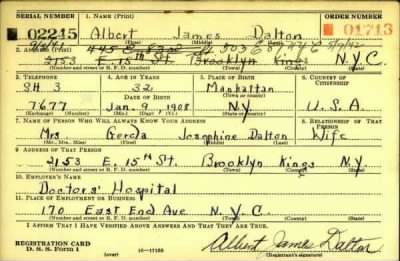 SERIAL NUMBER 1. NAME (Print) ORDER NUMBER
02245 Albert James Dalton 01713
(First) (Middle) (Last)
2. ADDRESS (Print)
2153 E. 15th St. Brooklyn Kings N.Y.C.
(Number and street or R. F. D. number) (Town) (County) (State)
3. TELEPHONE 4. AGE IN YEARS 5. PLACE OF BIRTH 6. COUNTRY OF CITIZENSHIP
SH 3 32 Manhattan
DATE OF BIRTH (Town or county)
7677 Jan. 9, 1908 N.Y. U.S.A.
(Exchange) (Number) (Mo.) (Day) (Yr.) (State or country)
7. NAME OF PERSON WHO WILL ALWAYS KNOW YOUR ADDRESS 8. RELATIONSHIP OF THAT PERSON
Mrs Gerda Josephine Dalton Wife
(Mr., Mrs., Miss) (First) (Middle) (Last)
9. ADDRESS OF THAT PERSON
2153 E. 15th St. Brooklyn Kings N.Y.
(Number and street or R. F. D. number) (Town) (County) (State)
10. EMPLOYER'S NAME
Doctors' Hospital
11. PLACE OF EMPLOYMENT OR BUSINESS
170 East End Ave N.Y.C.
(Number and street or R. F. D. number) (Town) (County) (State)
I AFFIRM THAT I HAVE VERIFIED ABOVE ANSWERS AND THAT THEY ARE TRUE.
REGISTRATION CARD
D. S. S. Form 1 (over) 16-17105 Albert James Dalton
(Registrant's signature)